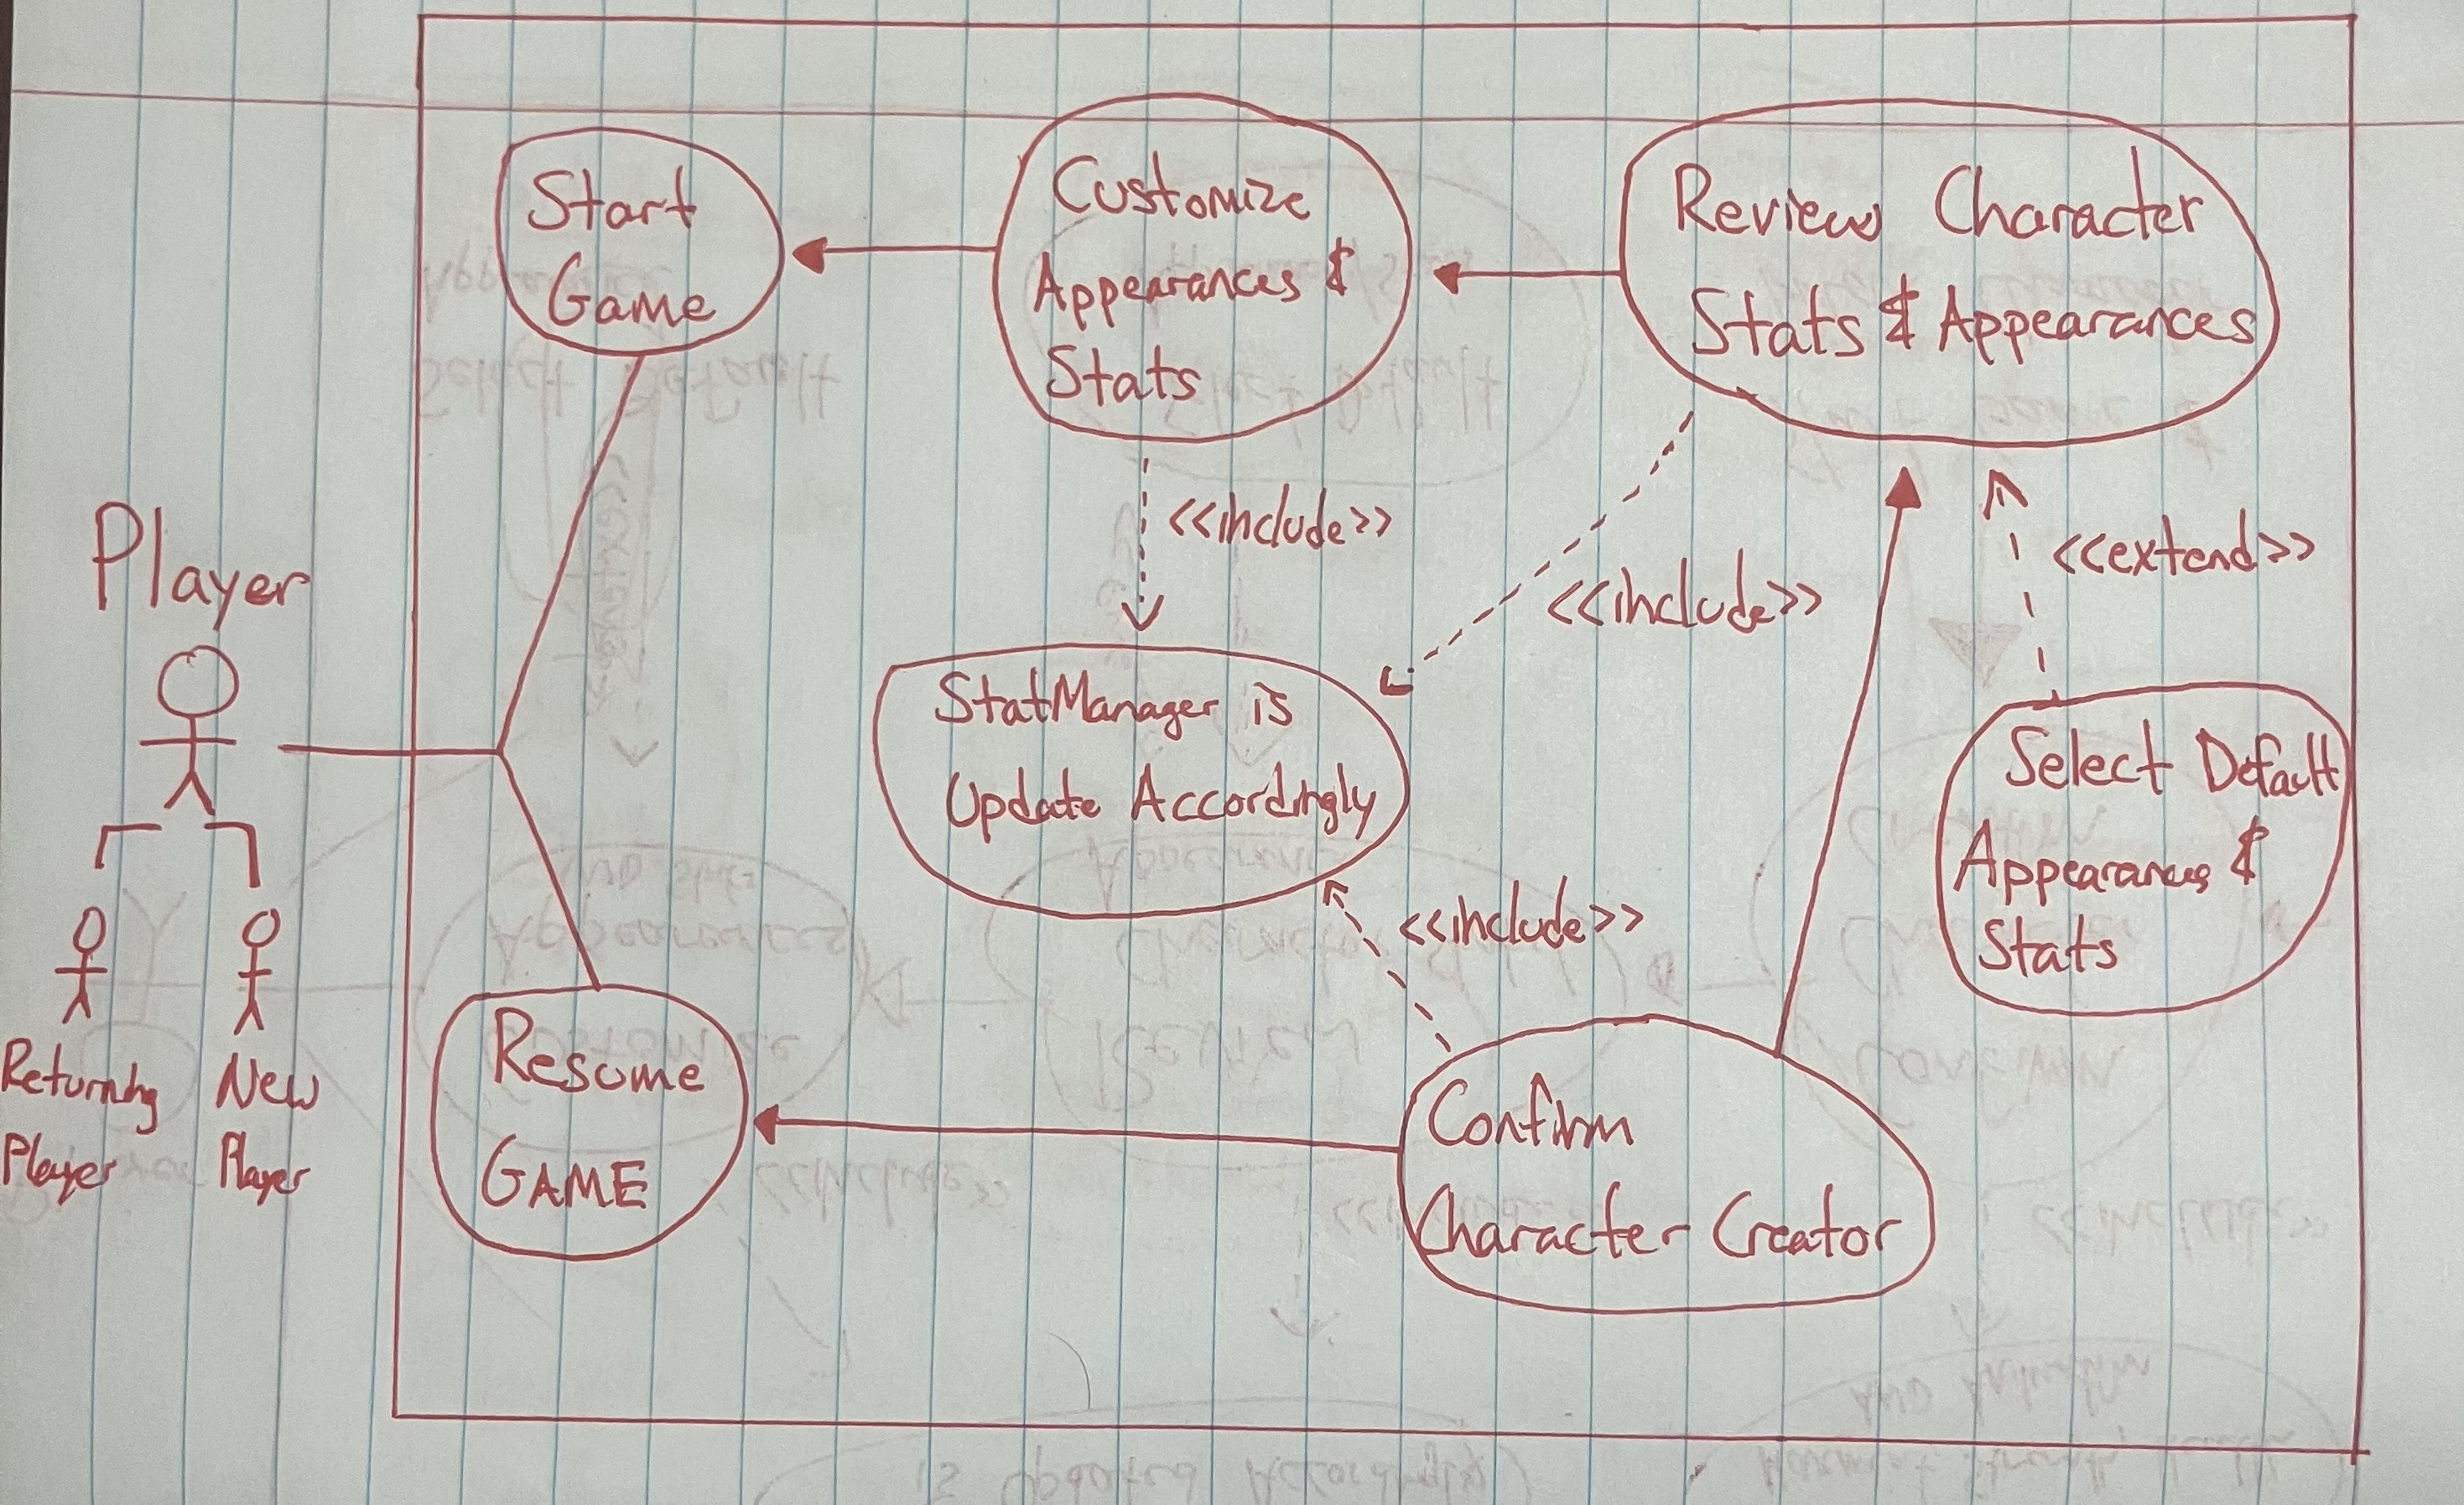 Start
Game
Customize
Appearances &
Stats
Review Character
Stats & Appearances
<<include>>
<<include>>
<<extend>>
Player
StatManager is
Update Accordingly
Select Default
Appearances &
Stats
<<include>>
Returning
Player
New
Player
Resume
GAME
Confirm
Character Creator
is Updated Accordingly